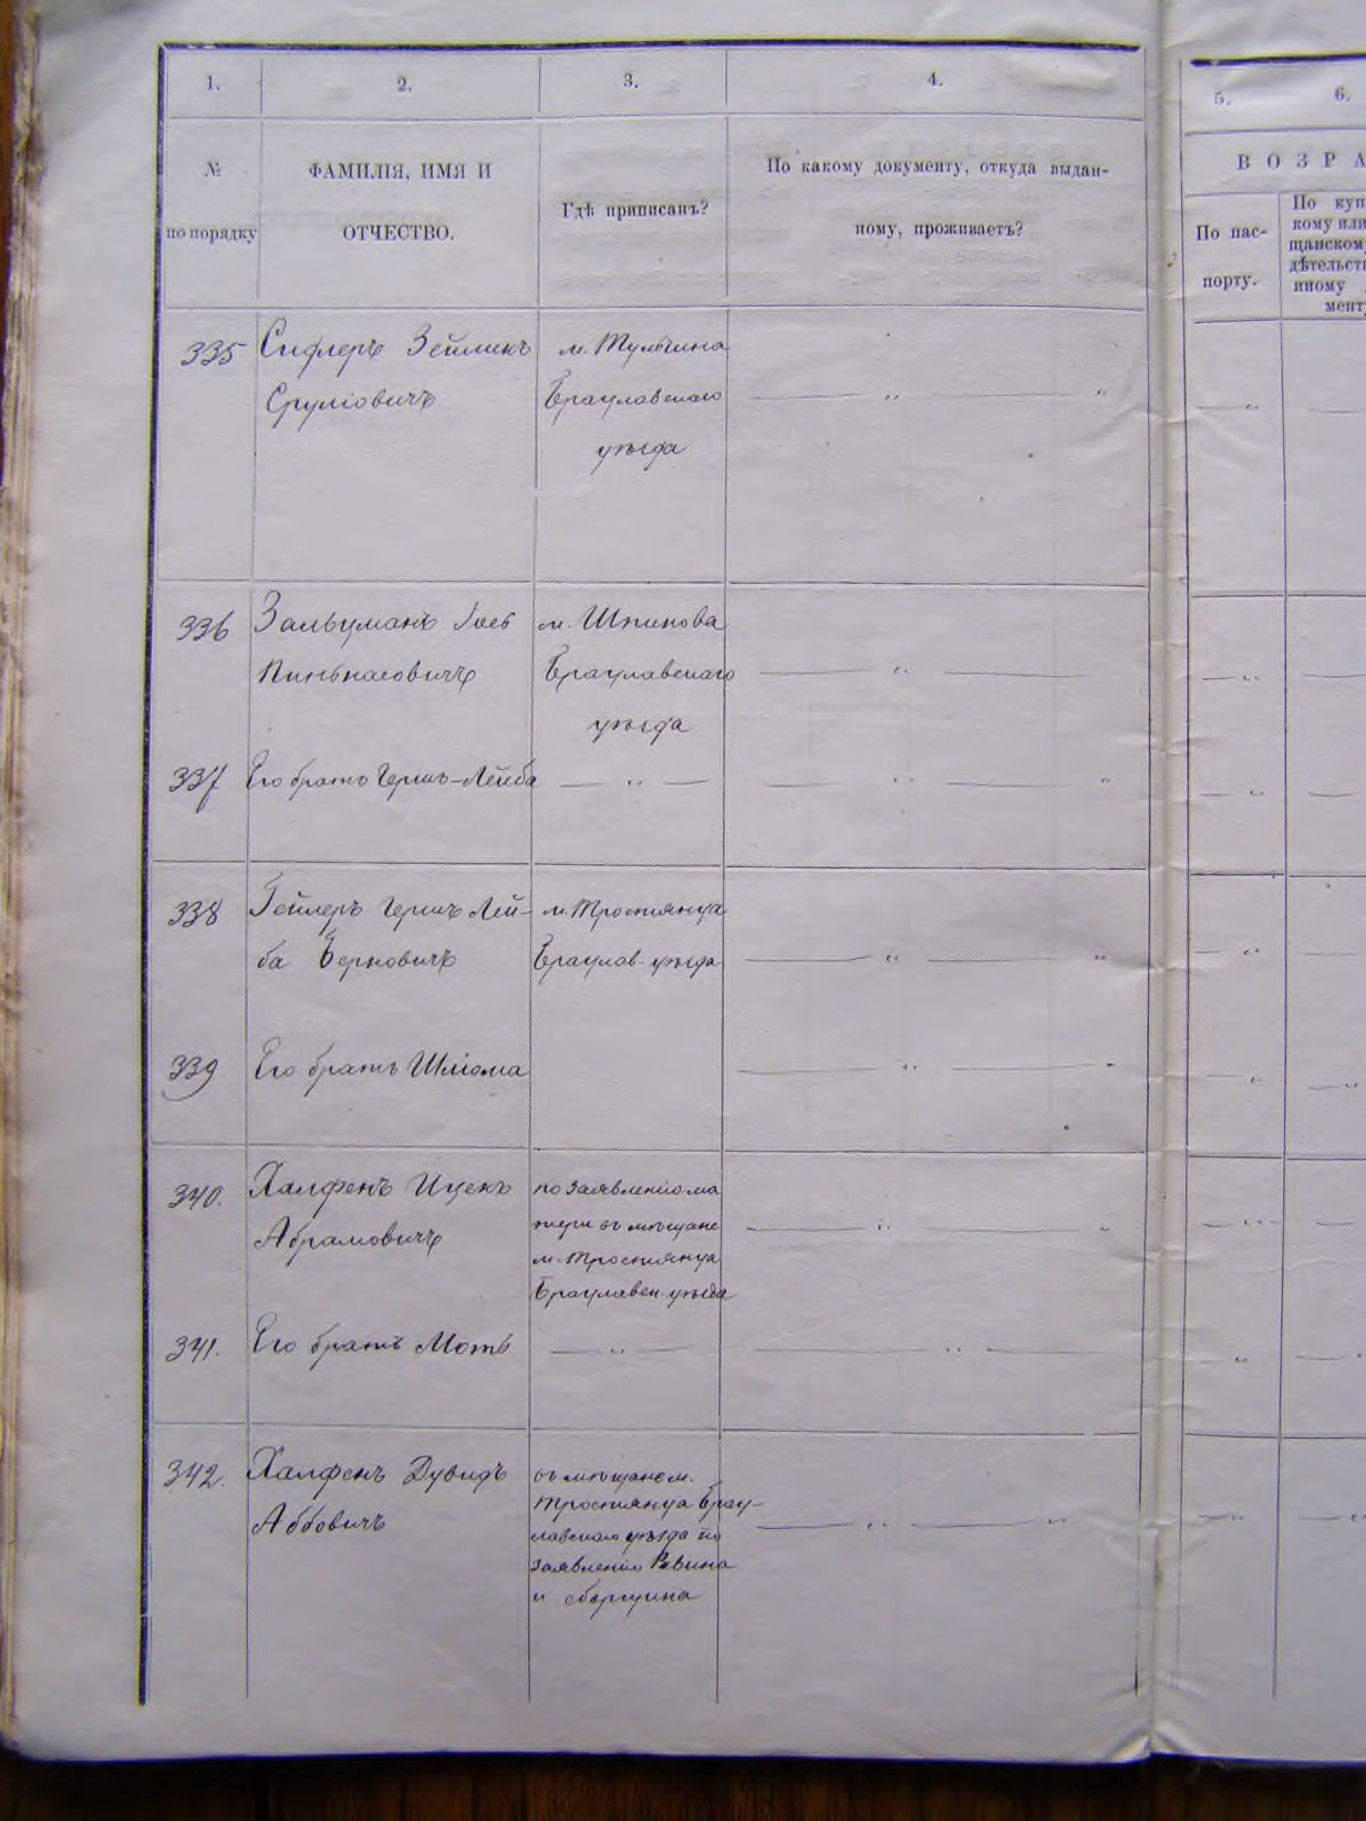 1.
2.
3.
4.
5.
6.
№
по порядку
ФАМИЛІЯ, ИМЯ И
ОТЧЕСТВО.
Гдѣ приписанъ?
По какому документу, откуда выдан-
ному, проживаетъ?
ВОЗРА
По пас-
порту.
По куп
кому или
щанском
дѣтельст
иному
мент
335
Сифлеръ Зейликъ
Сруліовичъ
м. Тульчина
Брацлавскаго
уѣзда
336
Зальцманъ Іось
Пиньнасовичъ
м. Шпикова
Брацлавскаго
уѣзда
337
Его братъ Гершъ-Лейба
338
Гейлеръ Гершъ Лей-
ба Берковичъ
м. Тростянца
Брацлав. уѣзда
339
Его братъ Шліома
340.
Халфенъ Ицекъ
Абрамовичъ
по заявленію ма
тери въ мѣщане
м. Тростянца
Брацлавск. уѣзда
341.
Его братъ Моть
342.
Халфенъ Дувидъ
Аббовичъ
въ мѣщане м.
Тростянца Брац-
лавскаго уѣзда по
заявленію Равина
и сборщика